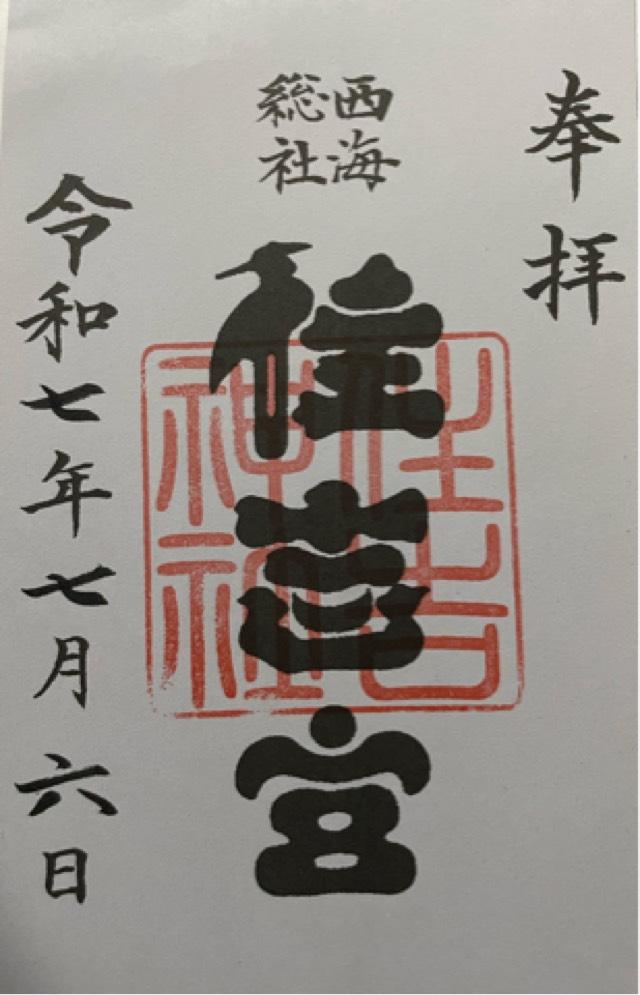 奉拝
西海
総社
住吉宮
住吉
神社
令和七年七月六日